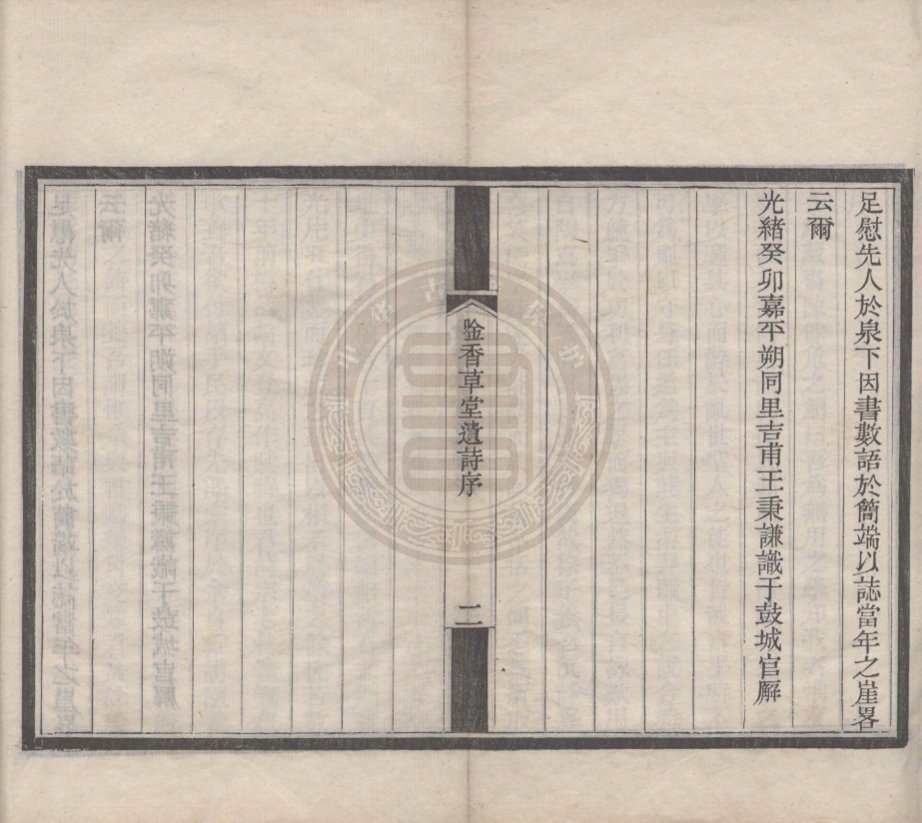 足慰先人於泉下因書數語於簡端以誌當年之崖畧
云爾
光緒癸卯嘉平朔同里吉甫王秉謙識于鼓城官廨
唫香草堂遺詩序
二